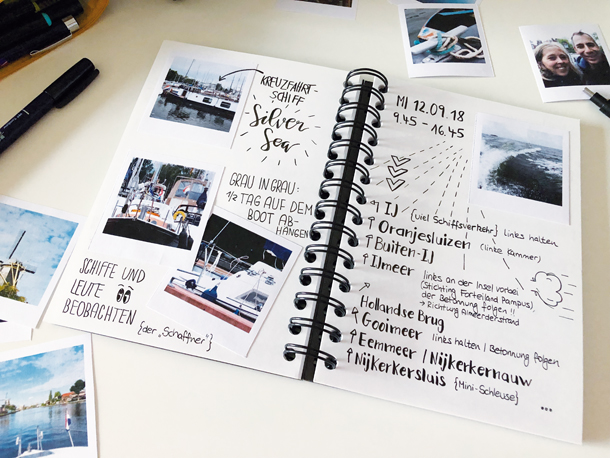 KREUZFAHRT-
SCHIFF
Silver
Sea
GRAU IN GRAU:
1/2 TAG AUF DEM
BOOT AB-
HÄNGEN
SCHIFFE UND
LEUTE
BEOBACHTEN
{der „Schaffner"}
MI 12.09.18
9.45 - 16.45
IJ {viel Schiffsverkehr} links halten
Oranjesluizen (linke Kammer)
Buiten-IJ
IJmeer
links an der Insel vorbei
(Stichting Forteiland Pampus),
der Betonnung folgen!!
→ Richtung Almeerderstrand
Hollandse Brug
Gooimeer links halten / Betonnung folgen
Eemmeer / Nijkerkernauw
Nijkerkersluis {Mini-Schleuse}
...